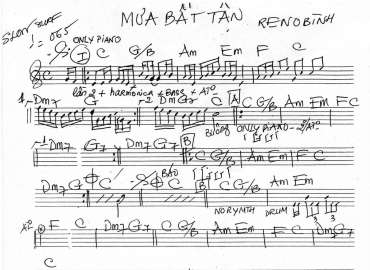 MƯA BẤT TẬN RENOBÌNH
SLOW SURF
♩= 065
I ONLY PIANO
C G/B Am Em F C
1 Dm7 G 2 Dm G7 C A C G/B Am Em F C
lần 2 + harmonica + BASS +
ONLY PIANO
1 Dm7 G7 Dm7 G7 B C G/B Am Em F C
Dm7 G C C B C G/B Am Em
NO RYMTH DRUM 3 3
F C Dm7 G7 C G/B Am Em F C Dm7 G
C